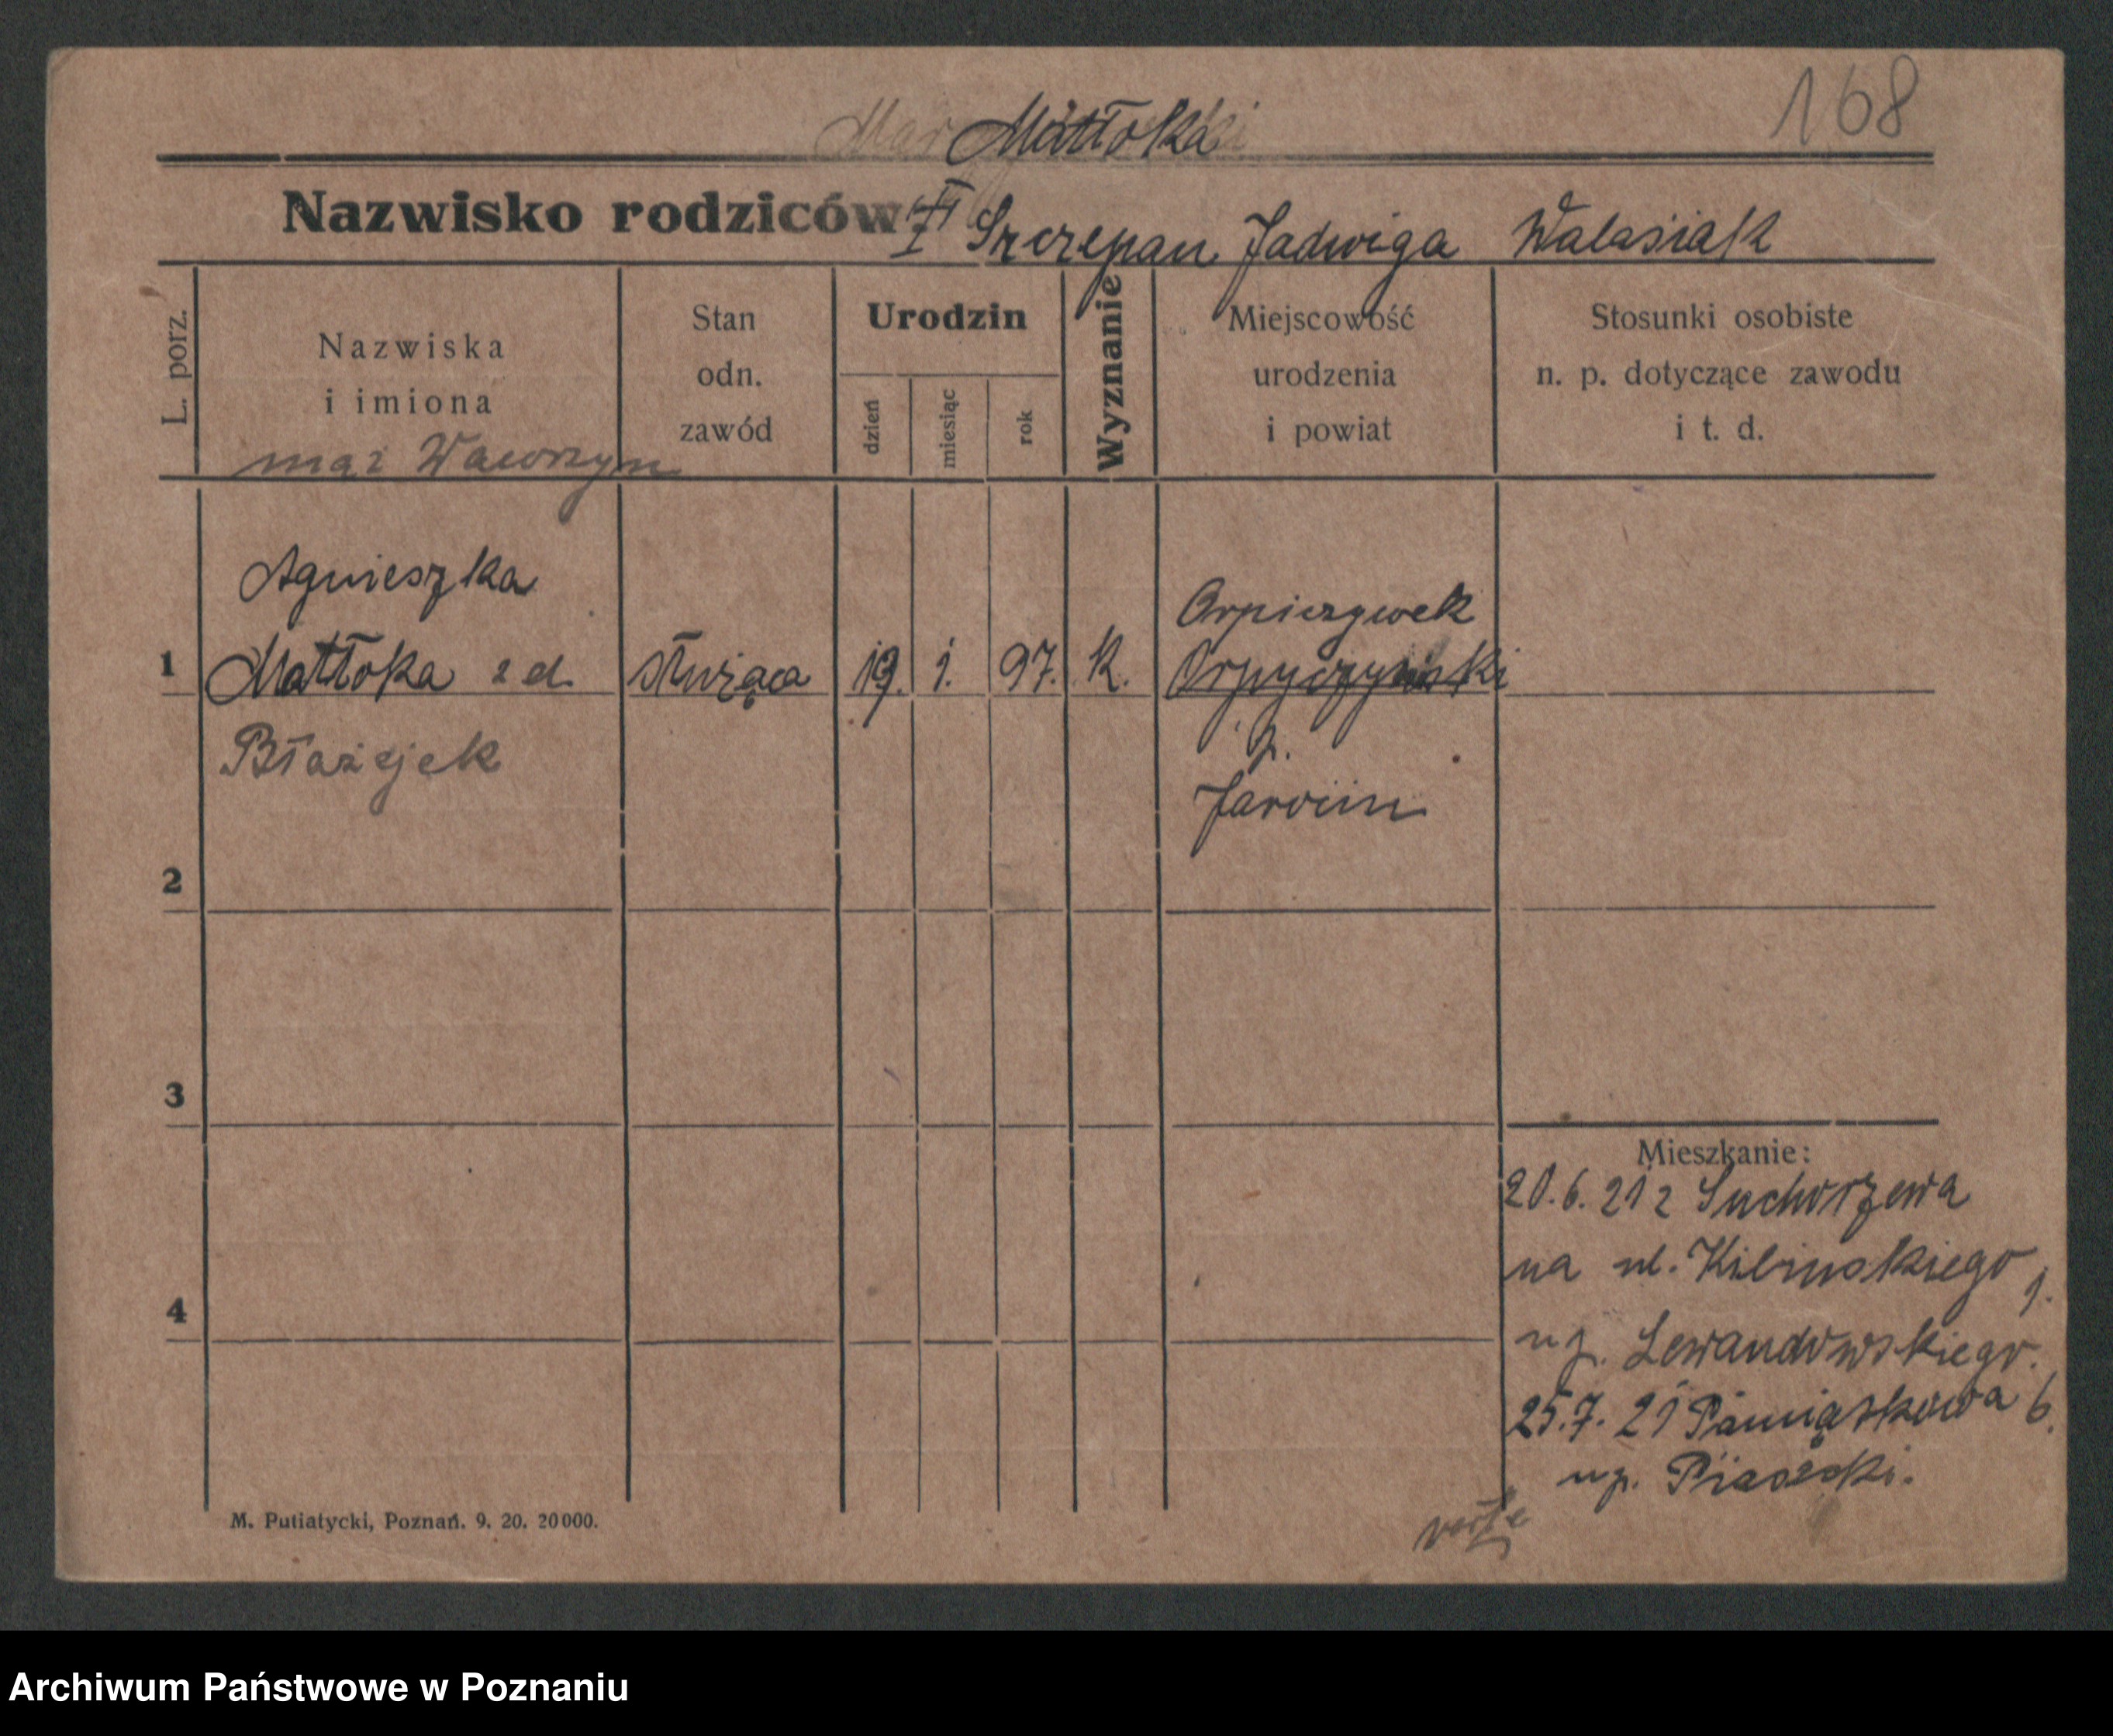 168
Matłoka
Nazwisko rodziców Szczepan Jadwiga Walasiak
L. porz.
Nazwiska
i imiona
mąż Wawrzyn
Stan
odn.
zawód
Urodzin
dzień
miesiąc
rok
Wyznanie
Miejscowość
urodzenia
i powiat
Stosunki osobiste
n. p. dotyczące zawodu
i t. d.
Agnieszka
1 Matłoka z d. służąca 19. 1. 97. K.
Błażejek
p.
Jarocin
2
3
4
Mieszkanie:
20. 6. 21 z Suchorzewa
na ul. Kilinskiego 1.
u p. Lewandowskiego.
25. 7. 21 Pamiątkowa 6.
u p. Piasecki.
M. Putiatycki, Poznań. 9. 20. 20000.
Archiwum Państwowe w Poznaniu